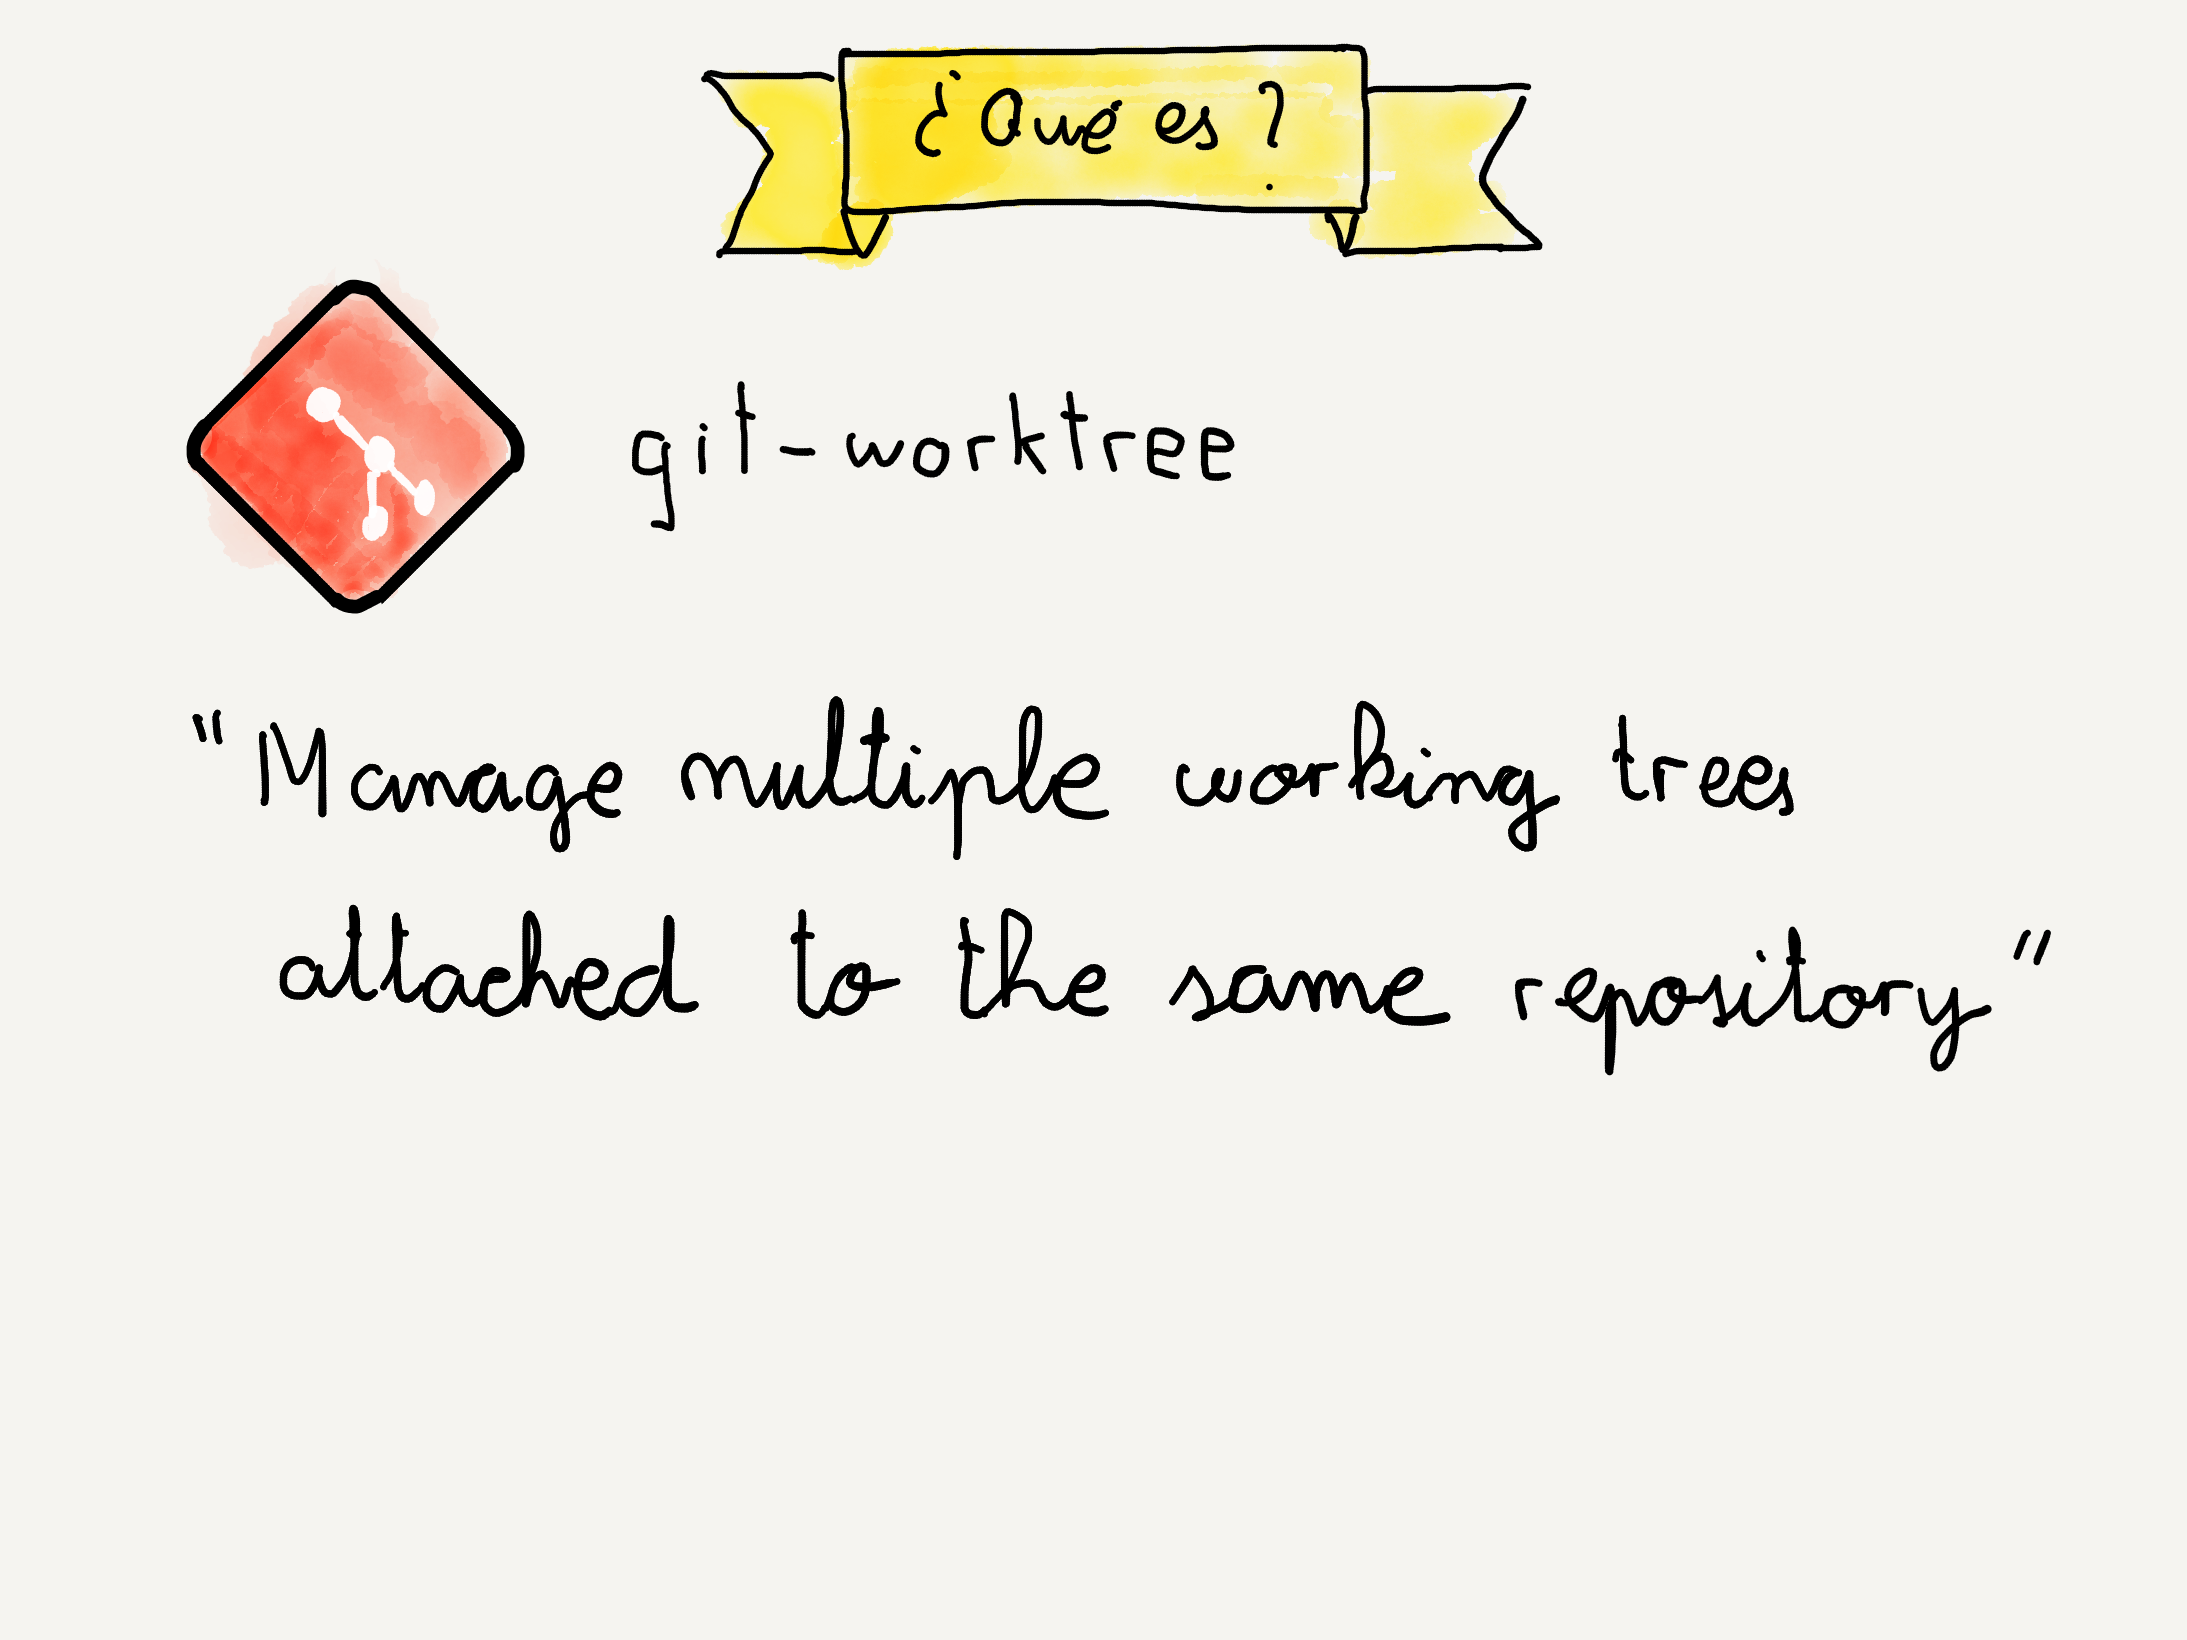 ¿Qué es?
git-worktree
"Manage multiple working trees
attached to the same repository"